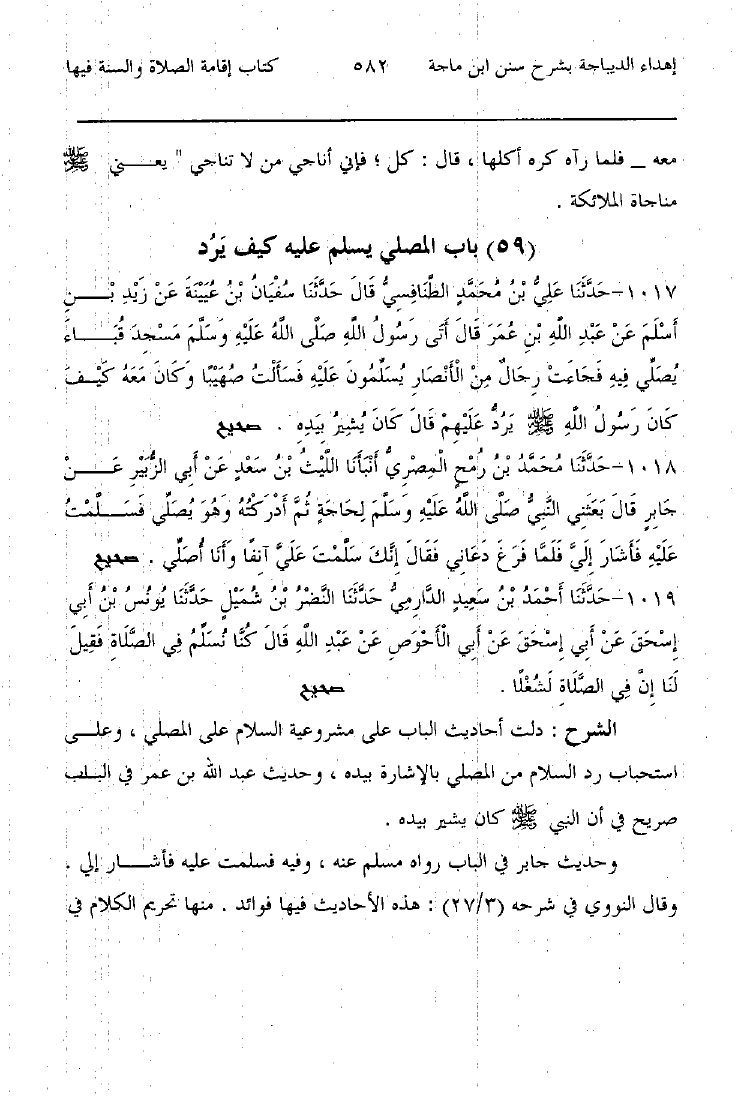 إهداء الديباجة بشرح سنن ابن ماجة ٥٨٢ كتاب إقامة الصلاة والسنة فيها
معه _ فلما رآه كره أكلها ، قال : كل ؛ فإني أناجي من لا تناجي " يعني ﷺ
مناجاة الملائكة .
(٥٩) باب المصلي يسلم عليه كيف يَرُد
١٠١٧-حَدَّثَنَا عَلِيُّ بْنُ مُحَمَّدٍ الطَّنَافِسِيُّ قَالَ حَدَّثَنَا سُفْيَانُ بْنُ عُيَيْنَةَ عَنْ زَيْدِ بْنِ
أَسْلَمَ عَنْ عَبْدِ اللَّهِ بْنِ عُمَرَ قَالَ أَتَى رَسُولُ اللَّهِ صَلَّى اللَّهُ عَلَيْهِ وَسَلَّمَ مَسْجِدَ قُبَاءَ
يُصَلِّي فِيهِ فَجَاءَتْ رِجَالٌ مِنْ الْأَنْصَارِ يُسَلِّمُونَ عَلَيْهِ فَسَأَلْتُ صُهَيْبًا وَكَانَ مَعَهُ كَيْفَ
كَانَ رَسُولُ اللَّهِ ﷺ يَرُدُّ عَلَيْهِمْ قَالَ كَانَ يُشِيرُ بِيَدِهِ . صحيح
١٠١٨-حَدَّثَنَا مُحَمَّدُ بْنُ رُمْحٍ الْمِصْرِيُّ أَنْبَأَنَا اللَّيْثُ بْنُ سَعْدٍ عَنْ أَبِي الزُّبَيْرِ عَنْ
جَابِرٍ قَالَ بَعَثَنِي النَّبِيُّ صَلَّى اللَّهُ عَلَيْهِ وَسَلَّمَ لِحَاجَةٍ ثُمَّ أَدْرَكْتُهُ وَهُوَ يُصَلِّي فَسَلَّمْتُ
عَلَيْهِ فَأَشَارَ إِلَيَّ فَلَمَّا فَرَغَ دَعَانِي فَقَالَ إِنَّكَ سَلَّمْتَ عَلَيَّ آنِفًا وَأَنَا أُصَلِّي . صحيح
١٠١٩-حَدَّثَنَا أَحْمَدُ بْنُ سَعِيدٍ الدَّارِمِيُّ حَدَّثَنَا النَّضْرُ بْنُ شُمَيْلٍ حَدَّثَنَا يُونُسُ بْنُ أَبِي
إِسْحَقَ عَنْ أَبِي إِسْحَقَ عَنْ أَبِي الْأَحْوَصِ عَنْ عَبْدِ اللَّهِ قَالَ كُنَّا نُسَلِّمُ فِي الصَّلَاةِ فَقِيلَ
لَنَا إِنَّ فِي الصَّلَاةِ لَشُغْلًا . صحيح
الشرح : دلت أحاديث الباب على مشروعية السلام على المصلي ، وعلى
استحباب رد السلام من المصلي بالإشارة بيده ، وحديث عبد الله بن عمر في الباب
صريح في أن النبي ﷺ كان يشير بيده .
وحديث جابر في الباب رواه مسلم عنه ، وفيه فسلمت عليه فأشار إلي .
وقال النووي في شرحه (٢٧/٣) : هذه الأحاديث فيها فوائد . منها تحريم الكلام في